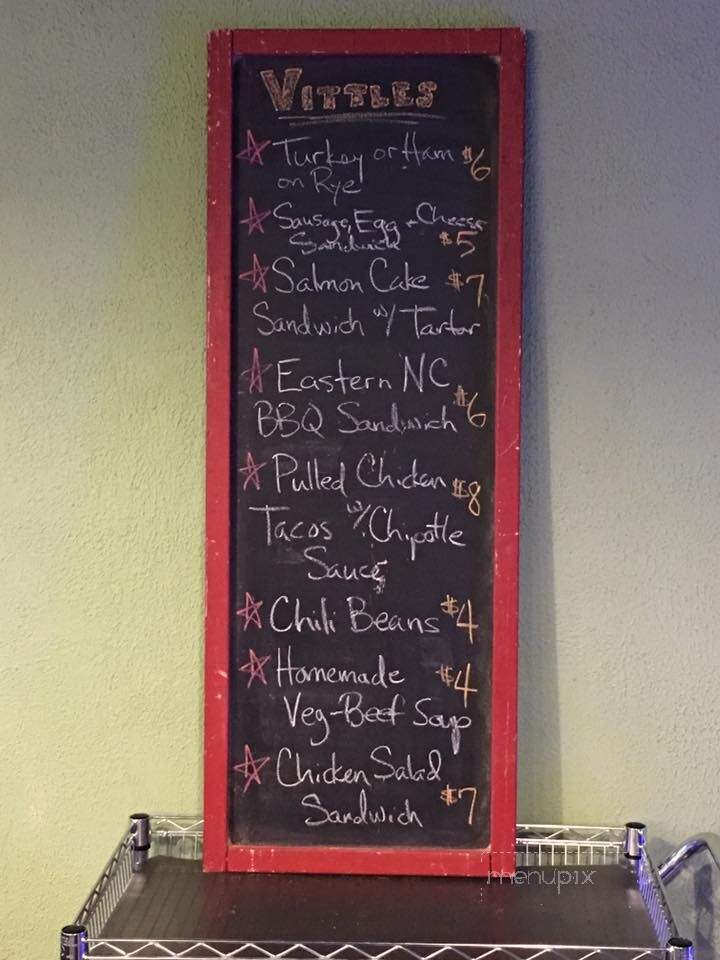 VITTLES
Turkey or Ham $6
on Rye
Sausage, Egg + Cheese
Sandwich $5
Salmon Cake $7
Sandwich w/ Tartar
Eastern NC
BBQ Sandwich $6
Pulled Chicken $8
Tacos w/ Chipotle
Sauce
Chili Beans $4
Homemade $4
Veg-Beef Soup
Chicken Salad
Sandwich $7
menupix